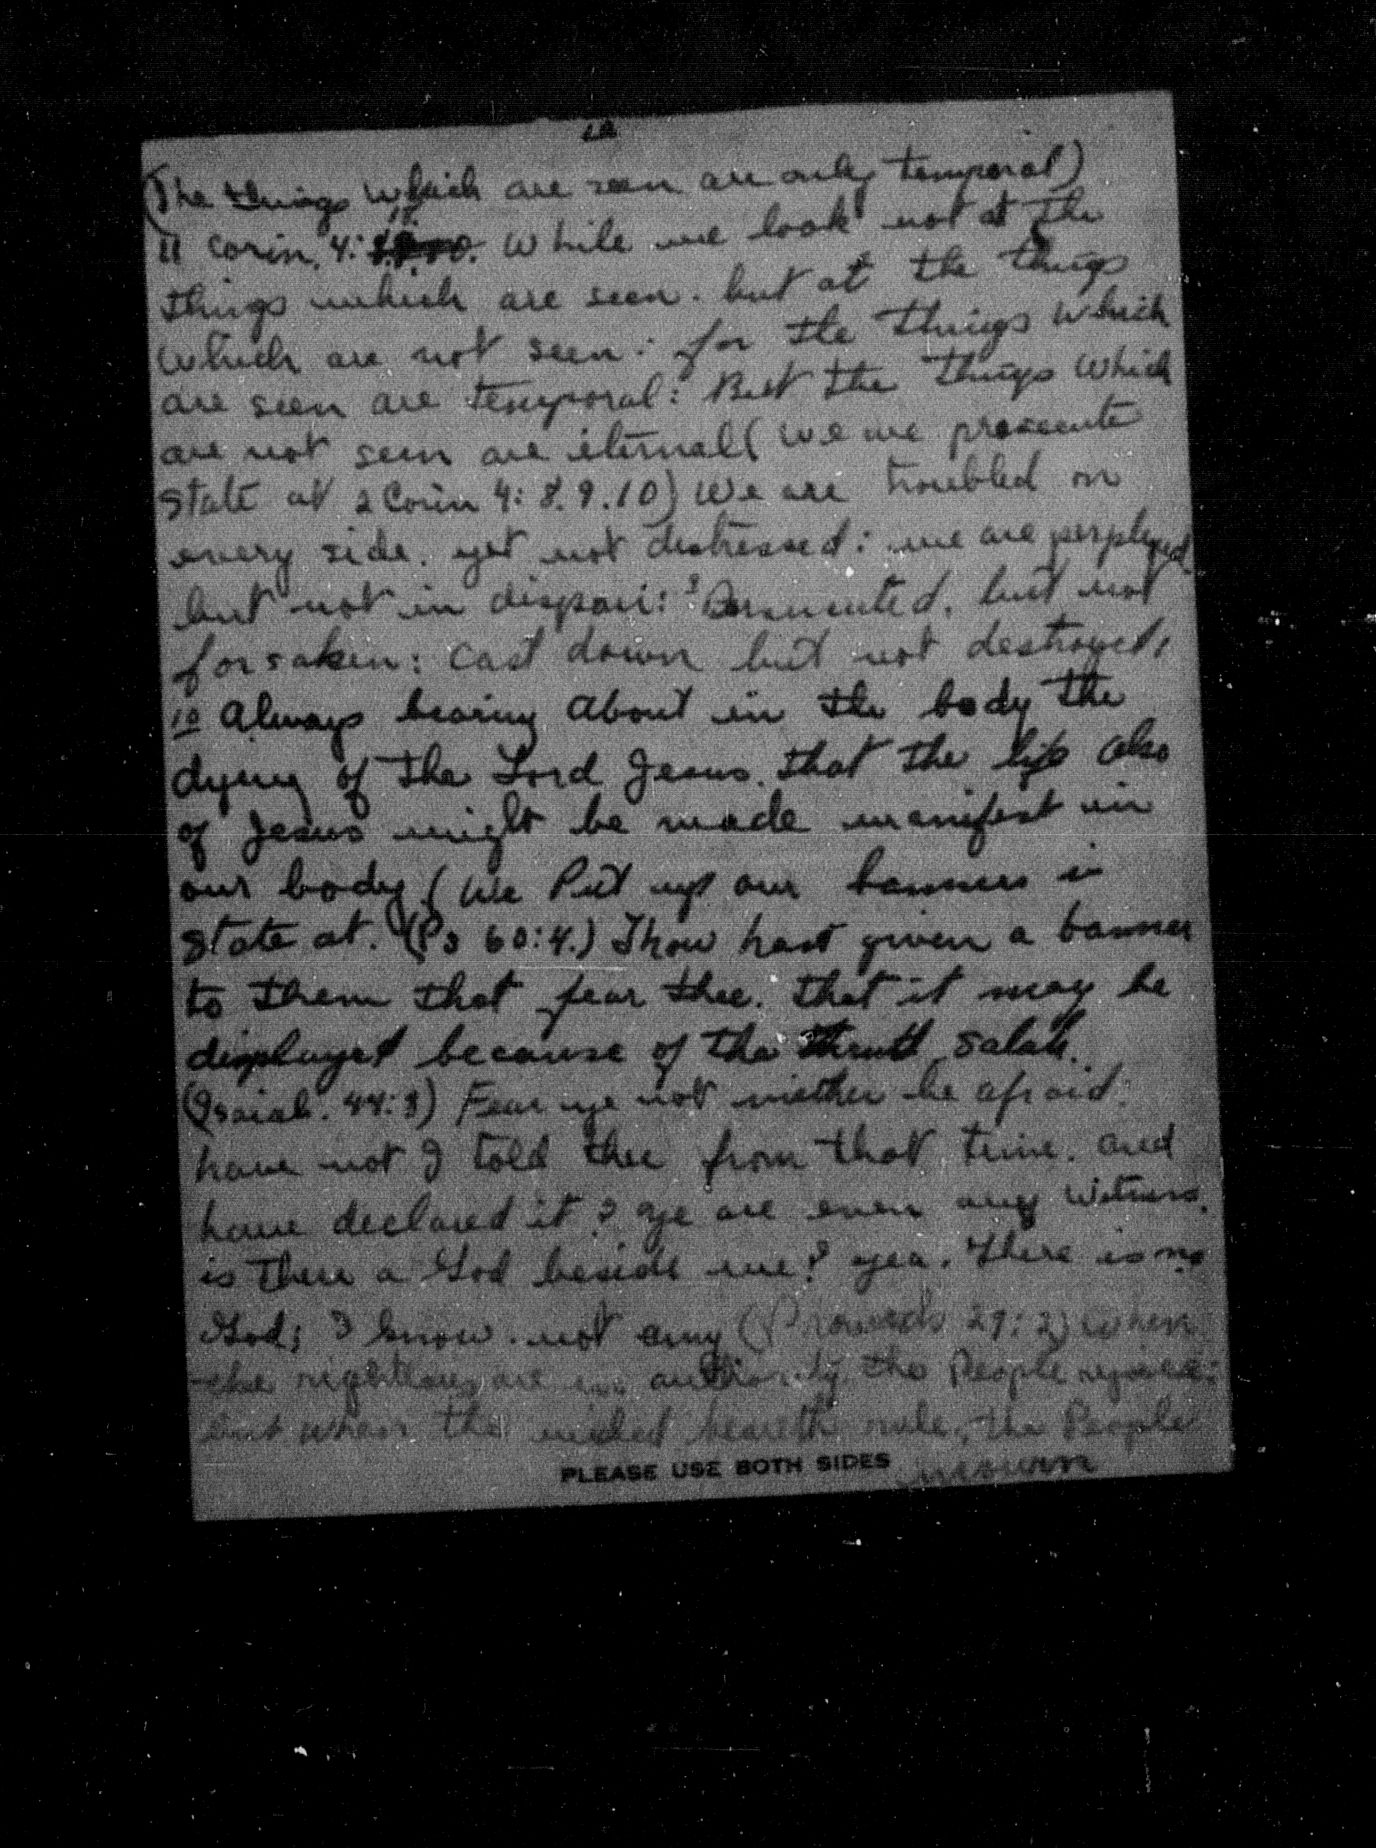 (The things which are seen are only temporal)
II Corin. 4: 18. While we look not at the
things which are seen. but at the things
which are not seen: for the things which
are seen are temporal: But the things which
are not seen are iternal (we are prosecute
State at 2 Corin 4: 8.9.10) We are troubled on
every side. yet not distressed: we are perplexed
but not in dispair: 9 Persecuted. but not
forsaken: cast down but not destroyed,
10 Always bearing about in the body the
dying of the Lord Jesus. that the life also
of Jesus might be made manifest in
our body (We Put up our banners in
State at. (Ps 60:4.) Thou hast given a banner
to them that fear thee. that it may be
displayed because of the Salah.
(Isaiah. 44:8) Fear ye not niether be afraid.
have not I told thee from that time. and
have declared it? ye are even my witness.
is there a God beside me? yea. there is no
God; I know not any (Proverbs 29:2) when
the rightious are in authority the People rejoice:
but when the wicked beareth rule, the People
mourn
PLEASE USE BOTH SIDES